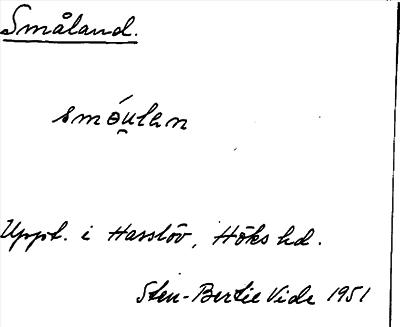 Småland.
smóu̯lan
Uppt. i Hasslöv, Höks hd.
Sten-Bertil Vide 1951